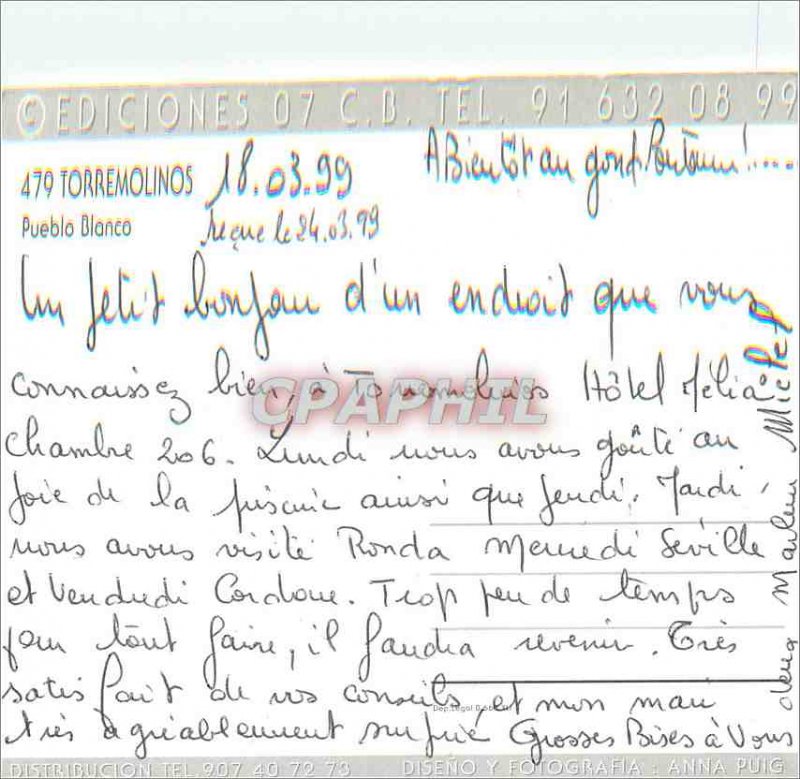 © EDICIONES 07 C.B. TEL. 91 632 08 99
479 TORREMOLINOS
Pueblo Blanco
18.03.99
reçue le 24.03.99
A Bientôt au
Un petit bonjour d'un endroit que vous
connaissez bien, à Torremolinos Hôtel Mélia
CPAPHIL
chambre 206. Lundi nous avons goûté au
joie de la piscine ainsi que jeudi. Mardi,
nous avons visité Ronda Mercredi Séville
et Vendredi Cordoue. Trop peu de temps
pour tout faire, il faudra revenir. Très
satisfait de vos conseils, et mon mari
Dep. Legal B.
très agréablement surpris Grosses Bises à Vous
deux Marlene Michel
DISTRIBUCION TEL. 907 40 72 73 DISEÑO Y FOTOGRAFIA: ANNA PUIG